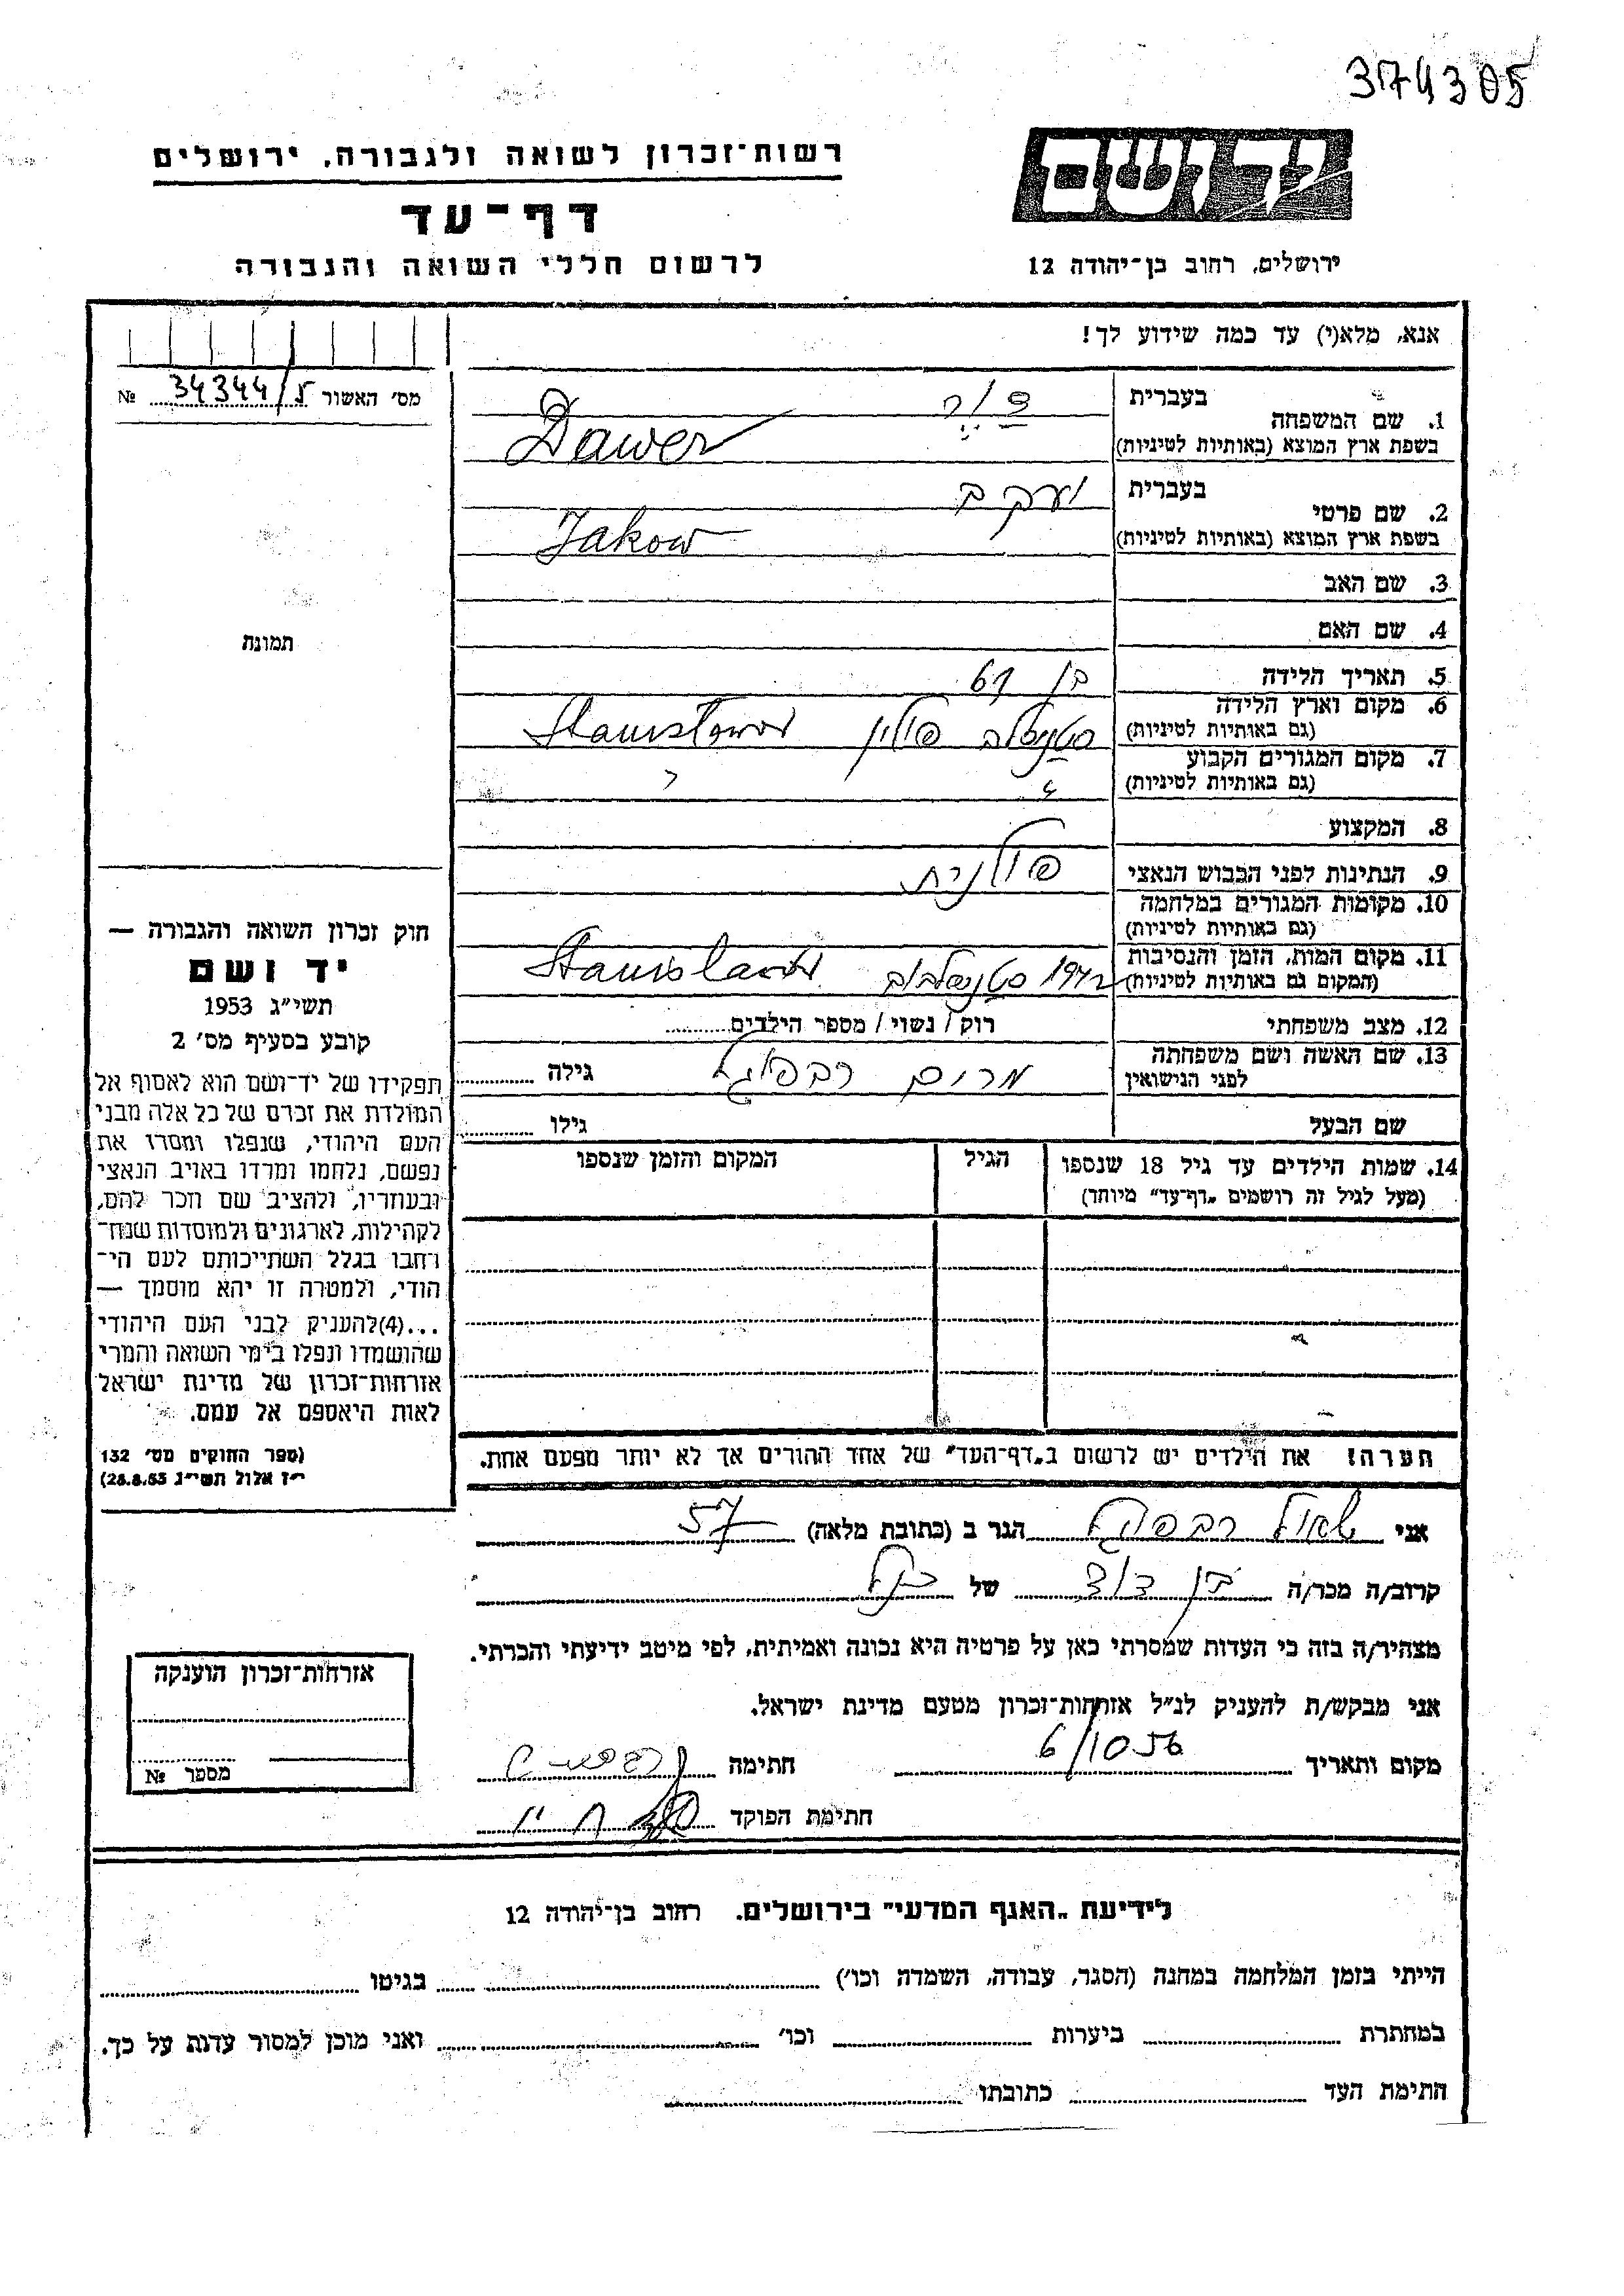 374305
רשות־זכרון לשואה ולגבורה, ירושלים
יד ושם
דף־עד
לרשום חללי השואה והגבורה
ירושלים, רחוב בן־יהודה 12
אנא, מלא(י) עד כמה שידוע לך!
מס׳ האשור 34344/5 №
1. שם המשפחה
בעברית
בשפת ארץ המוצא (באותיות לטיניות) Dawer
2. שם פרטי
בעברית יעקב
בשפת ארץ המוצא (באותיות לטיניות) Jakow
3. שם האב
4. שם האם
תמונת
5. תאריך הלידה בן 61
6. מקום וארץ הלידה
(גם באותיות לטיניות) פולין Stanisławow
7. מקום המגורים הקבוע
(גם באותיות לטיניות)
8. המקצוע
9. הנתינות לפני הכבוש הנאצי פולנית
10. מקומות המגורים במלחמה
(גם באותיות לטיניות)
11. מקום המות, הזמן והנסיבות
(המקום גם באותיות לטיניות) 1942
12. מצב משפחתי רוק / נשוי / מספר הילדים
13. שם האשה ושם משפחתה
לפני הנישואין מרים גילה
שם הבעל גילו
14. שמות הילדים עד גיל 18 שנספו הגיל המקום והזמן שנספו
(מעל לגיל זה רושמים „דף־עד” מיוחד)
חוק זכרון השואה והגבורה —
יד ושם
תשי״ג 1953
קובע בסעיף מס׳ 2
תפקידו של יד־ושם הוא לאסוף אל
המולדת את זכרם של כל אלה מבני
העם היהודי, שנפלו ומסרו את
נפשם, נלחמו ומרדו באויב הנאצי
ובעוזריו, ולהציב שם וזכר להם,
לקהילות, לארגונים ולמוסדות שנח־
רחבו בגלל השתייכותם לעם הי־
הודי, ולמטרה זו יהא מוסמך —
...(4)להעניק לבני העם היהודי
שהושמדו ונפלו בימי השואה והמרי
אזרחות־זכרון של מדינת ישראל
לאות היאספם אל עמם.
(ספר החוקים מס׳ 132
י״ז אלול תשי״ג 28.8.53)
הערה! את הילדים יש לרשום ב„דף־העד” של אחד ההורים אך לא יותר מפעם אחת.
אני שאול הגר ב (כתובת מלאה) 57
קרוב/ה מכר/ה בן דוד של
מצהיר/ה בזה כי העדות שמסרתי כאן על פרטיה היא נכונה ואמיתית, לפי מיטב ידיעתי והכרתי.
אני מבקש/ת להעניק לנ״ל אזרחות־זכרון מטעם מדינת ישראל.
מקום ותאריך 6/10 56 חתימה
חתימת הפוקד
אזרחות־זכרון הוענקה
מספר №
לידיעת „האגף המדעי” בירושלים. רחוב בן־יהודה 12
הייתי בזמן המלחמה במחנה (הסגר, עבודה, השמדה וכו׳) בגיטו
במחתרת ביערות וכו׳ ואני מוכן למסור עדות על כך.
חתימת העד כתובתו